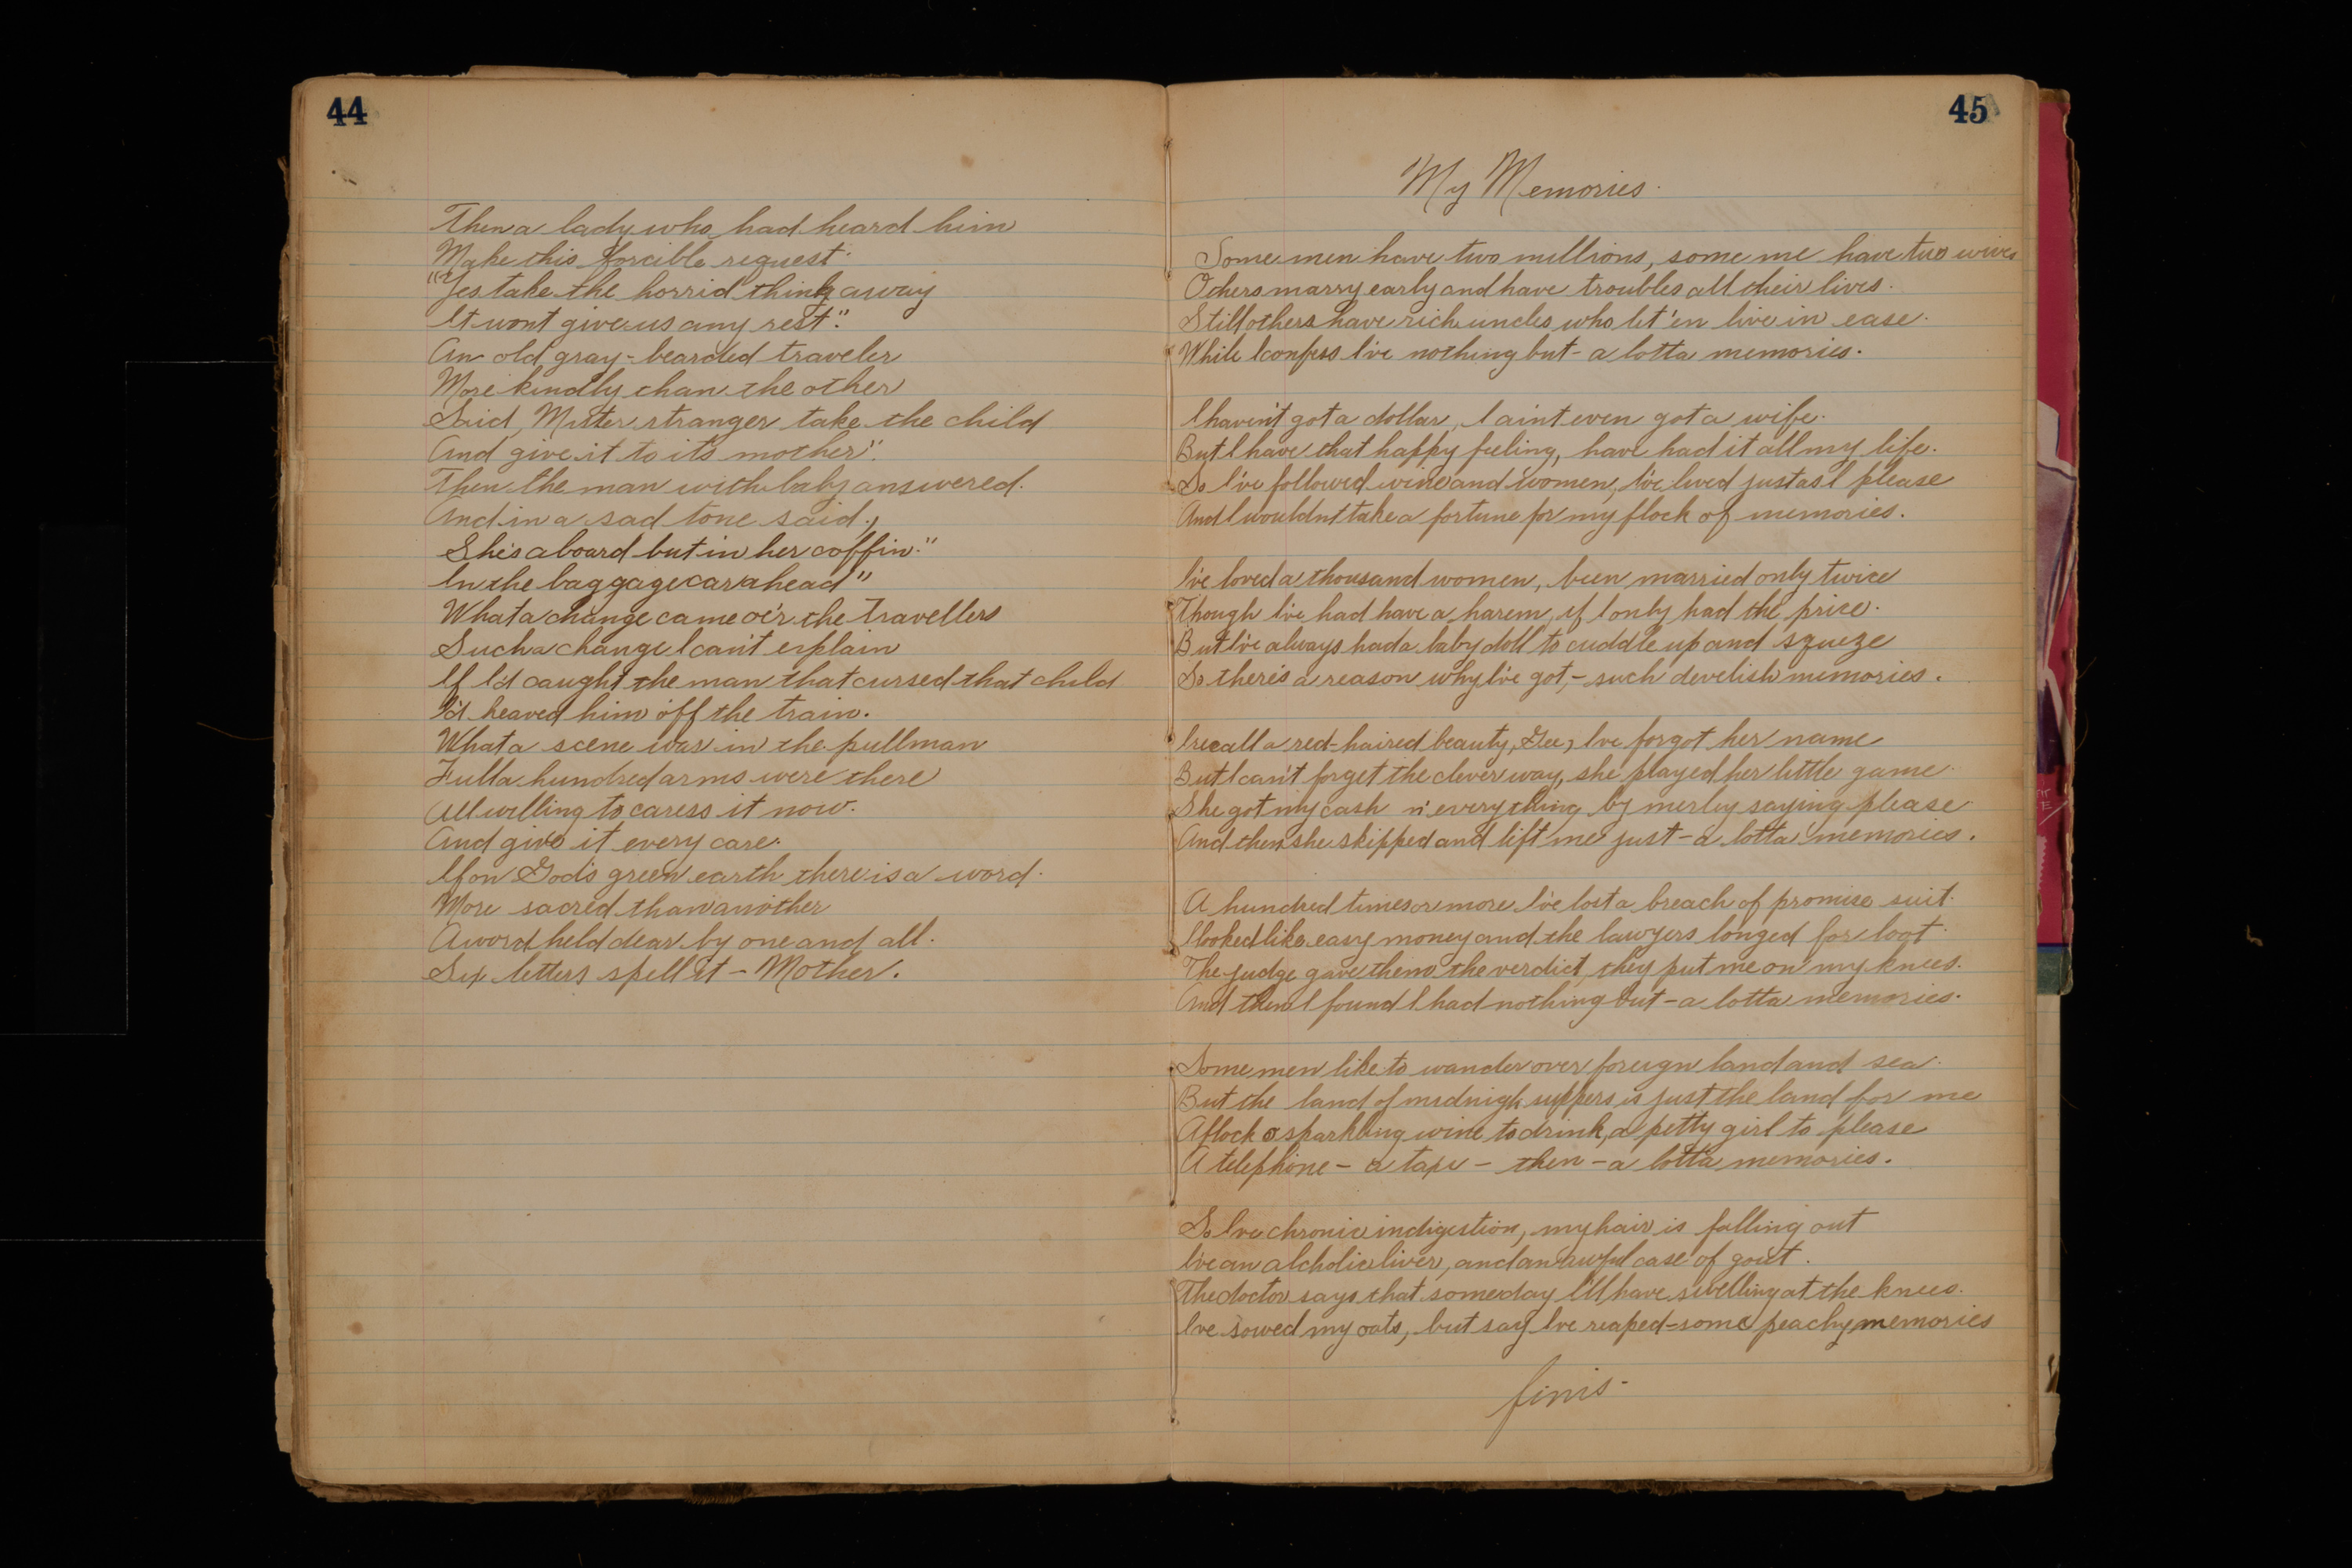 44
Then a lady who had heard him
Make this forcible request.
"Yes take the horrid think away
It wont give us any rest".
An old gray-bearded traveler
More kindly than the other
Said, Mister stranger take the child
And give it to its mother".
Then the man with baby answered.
And in a sad tone said,
She's aboard but in her coffin."
In the baggage car ahead"
What a change came o'er the travellers
Such a change I can't explain
If I'd caught the man that cursed that child
I'd heaved him off the train.
What a scene was in the pullman
Full a hundred arms were there
All willing to caress it now.
And give it every care.
If on God's green earth there is a word.
More sacred than another
A word held dear by one and all.
Six letters spell it - Mother.
45
My Memories.
Some men have two millions, some me have two wives
Others marry early and have troubles all their lives.
Still others have rich uncles who let 'en live in ease.
While I confess I've nothing but - a lotta memories.
I haven't got a dollar, I aint even got a wife.
But I have that happy feeling, have had it all my life.
So I've followed wine and women, I've lived just as I please
And I wouldn't take a fortune for my flock of memories.
I've loved a thousand women, been married only twice
Though I've had have a harem, if I only had the price.
But I've always had a baby doll to cuddle up and squeze
So there's a reason why I've got, - such develish memories.
I recall a red-haired beauty, Gee, I've forgot her name
But I can't forget the clever way, she played her little game.
She got my cash n' every thing by merley saying please
And then she skipped and lift me just - a lotta memories.
A hundred times or more I've lost a breach of promise suit.
I looked like easy money and the lawyers longed for loot.
The judge gave them the verdict, they put me on my knees.
And then I found I had nothing but - a lotta memories.
Some men like to wander over foreign land and sea.
But the land of midnigh suppers is just the land for me
A flock o sparkling wine to drink, a petty girl to please
A telephone - a taxi - then - a lotta memories.
So I've chronic indigestion, my hair is falling out
I've an alcholic liver, and an awful case of gout.
The doctor says that someday I'll have swelling at the knees.
I've sowed my oats, but say I've reaped - some peachy memories
finis -